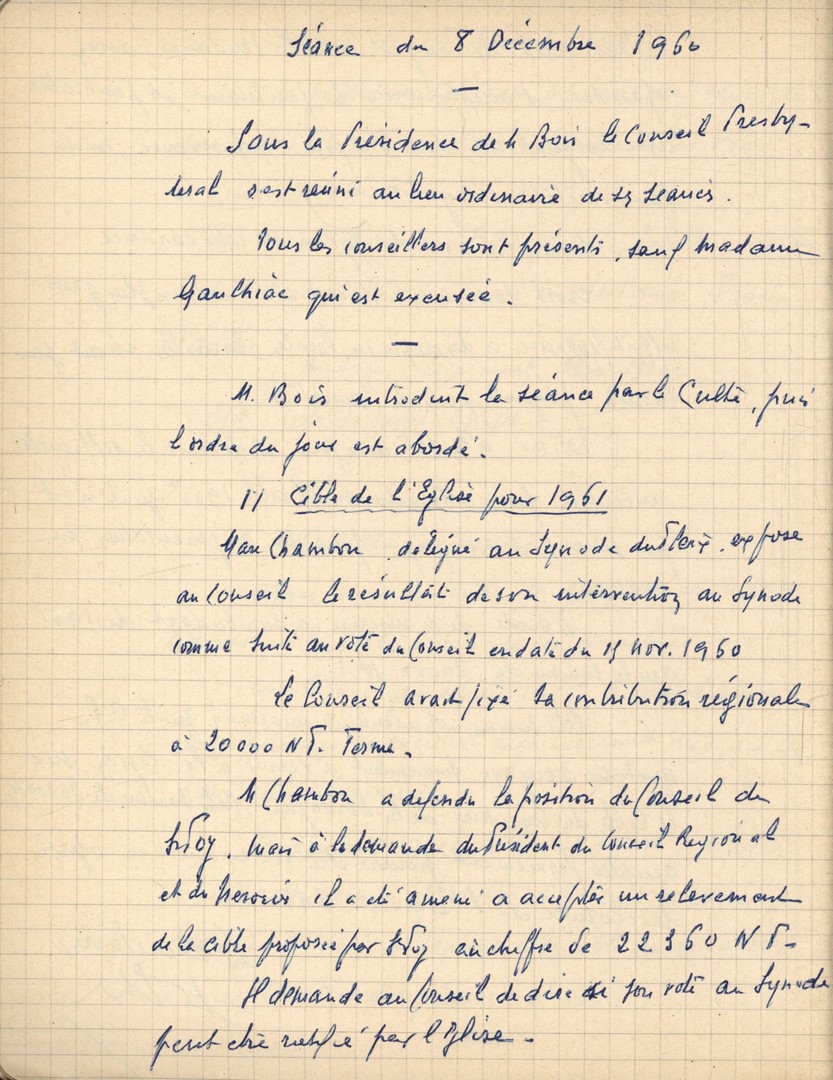 Séance du 8 Décembre 1960
Sous la Présidence de M Bois le Conseil Presby-
téral s'est réuni au lieu ordinaire de ses séances.
Tous les conseillers sont présents, sauf Madame
Gauthiac qui est excusée.
M. Bois introduit la séance par le Culte, puis
l'ordre du jour est abordé.
1) Cible de l'Eglise pour 1961
Marc Chambon, délégué au Synode du Fleix, expose
au Conseil le résultat de son intervention au Synode
comme suite au vote du Conseil en date du 15 nov. 1960
Le Conseil avait fixé sa contribution régionale
à 20000 NF. Ferme.
M Chambon a défendu la position du Conseil de
Ste Foy, mais à la demande du Président du Conseil Régional
et du Trésorier il a été amené à accepter un relèvement
de la cible proposée par Ste Foy au chiffre de 22360 NF-
Il demande au Conseil de dire si son vote au Synode
peut être ratifié par l'Eglise.